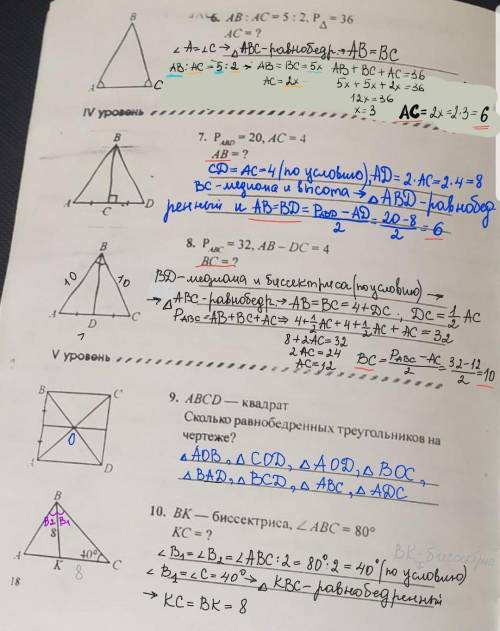 B
A
C
6. AB : AC = 5 : 2, P△ = 36
AC = ?
∠A=∠C → △ABC-равнобедр. → AB=BC
AB:AC=5:2 → AB=BC=5x AB+BC+AC=36
AC=2x 5x+5x+2x=36
12x=36
x=3 AC=2x=2·3=6
IV уровень
B
A
C
D
7. P_ABD = 20, AC = 4
AB = ?
CD=AC=4 (по условию), AD=2·AC=2·4=8
BC-медиана и высота → △ABD-равнобед
ренный и AB=BD= (P_ABD-AD)/2 = (20-8)/2 = 6
B
10
10
A
D
C
8. P_ABC = 32, AB – DC = 4
BC = ?
BD-медиана и биссектриса (по условию) →
→ △ABC-равнобедр → AB=BC=4+DC, DC=1/2 AC
P_ABC=AB+BC+AC ⇒ 4+1/2AC+4+1/2AC+AC=32
8+2AC=32
2AC=24
AC=12
BC= (P_ABC-AC)/2 = (32-12)/2 = 10
V уровень
B
C
O
A
D
9. ABCD — квадрат
Сколько равнобедренных треугольников на
чертеже?
△AOB, △COD, △AOD, △BOC,
△BAD, △BCD, △ABC, △ADC
B
B2
B1
8
40°
A
K
8
C
10. BK — биссектриса, ∠ABC = 80°
KC = ?
BK-биссектри
∠B1=∠B2=∠ABC:2=80°:2=40° (по условию)
∠B1=∠C=40° → △KBC-равнобедренный
→ KC=BK=8
18